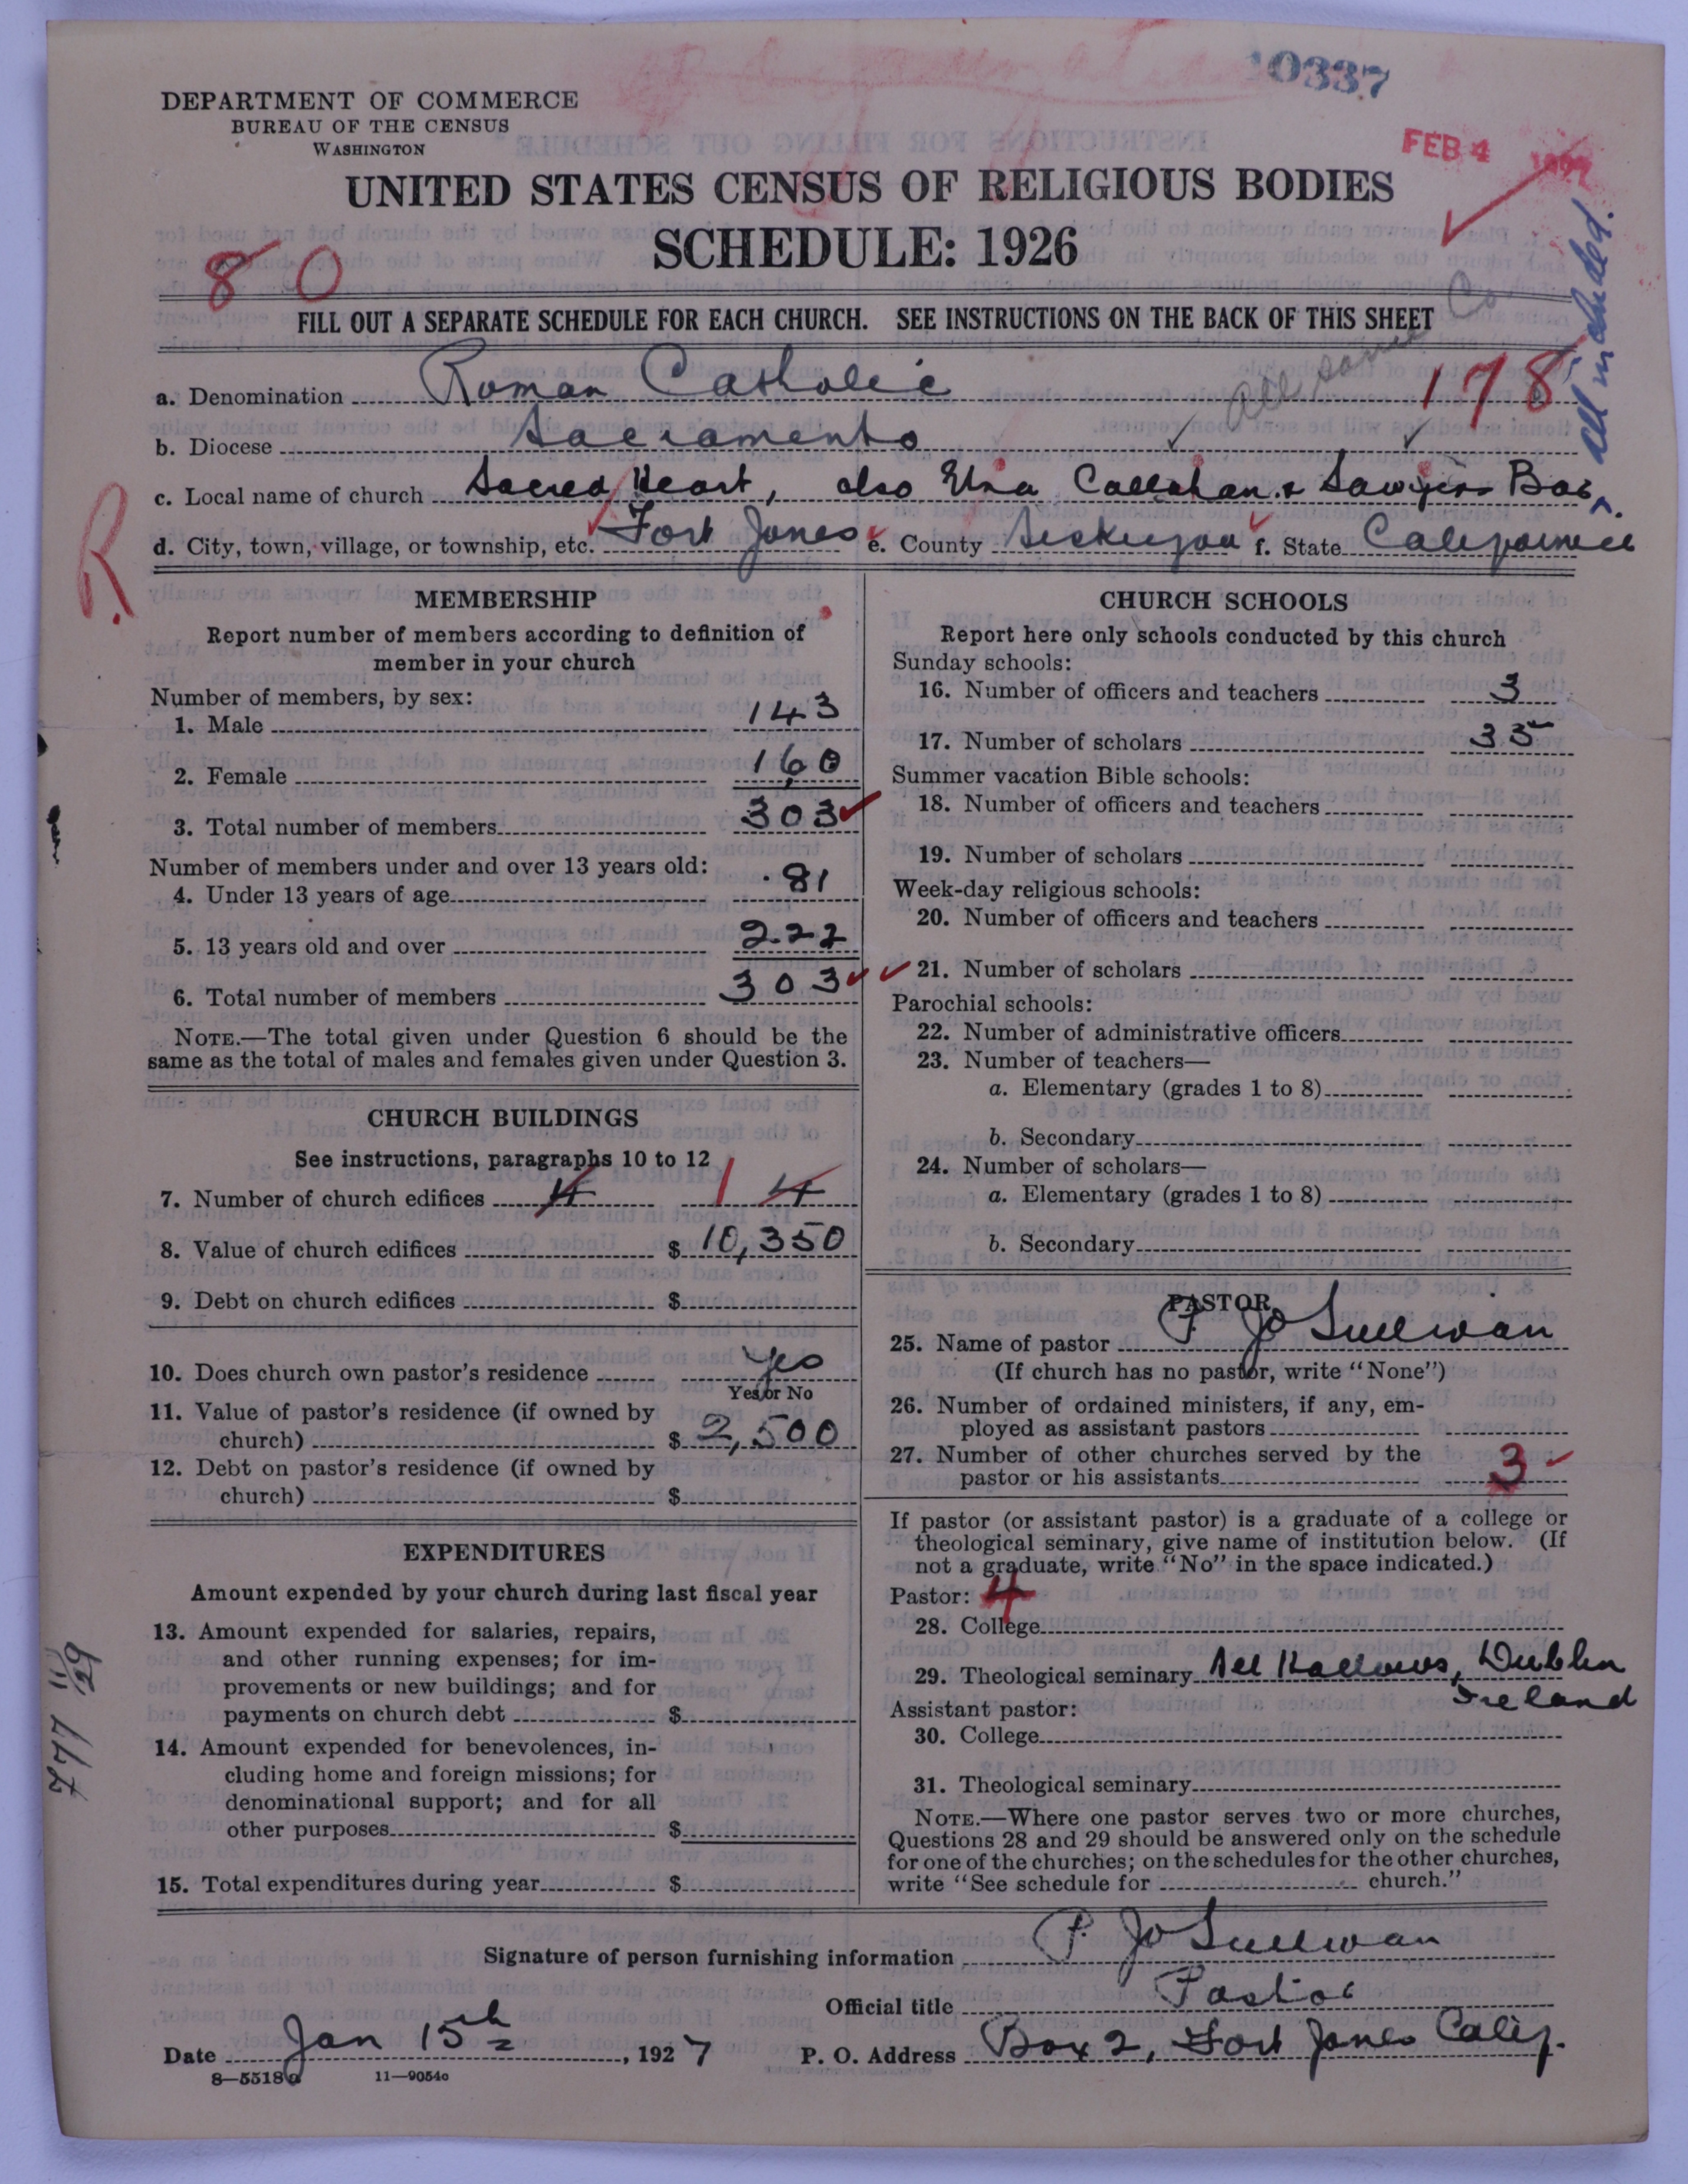 10337
DEPARTMENT OF COMMERCE
BUREAU OF THE CENSUS
WASHINGTON
FEB 4 1927
UNITED STATES CENSUS OF RELIGIOUS BODIES
SCHEDULE: 1926
80
FILL OUT A SEPARATE SCHEDULE FOR EACH CHURCH. SEE INSTRUCTIONS ON THE BACK OF THIS SHEET
All same Co
178
All included.
a. Denomination Roman Catholic
b. Diocese Sacramento
c. Local name of church Sacred Heart, also Etna Callahan & Sawyers Bar
d. City, town, village, or township, etc. Fort Jones e. County Siskiyou f. State California
R.
MEMBERSHIP
Report number of members according to definition of
member in your church
Number of members, by sex:
1. Male 143
2. Female 160
3. Total number of members 303
Number of members under and over 13 years old:
4. Under 13 years of age 81
5. 13 years old and over 222
6. Total number of members 303
NOTE.—The total given under Question 6 should be the
same as the total of males and females given under Question 3.
CHURCH BUILDINGS
See instructions, paragraphs 10 to 12
7. Number of church edifices 4 1 4
8. Value of church edifices $ 10,350
9. Debt on church edifices $
10. Does church own pastor's residence Yes
Yes or No
11. Value of pastor's residence (if owned by
church) $ 2,500
12. Debt on pastor's residence (if owned by
church) $
EXPENDITURES
Amount expended by your church during last fiscal year
13. Amount expended for salaries, repairs,
and other running expenses; for im-
provements or new buildings; and for
payments on church debt $
14. Amount expended for benevolences, in-
cluding home and foreign missions; for
denominational support; and for all
other purposes $
15. Total expenditures during year $
CHURCH SCHOOLS
Report here only schools conducted by this church
Sunday schools:
16. Number of officers and teachers 3
17. Number of scholars 35
Summer vacation Bible schools:
18. Number of officers and teachers
19. Number of scholars
Week-day religious schools:
20. Number of officers and teachers
21. Number of scholars
Parochial schools:
22. Number of administrative officers
23. Number of teachers—
a. Elementary (grades 1 to 8)
b. Secondary
24. Number of scholars—
a. Elementary (grades 1 to 8)
b. Secondary
PASTOR
25. Name of pastor P. J O'Sullivan
(If church has no pastor, write "None")
26. Number of ordained ministers, if any, em-
ployed as assistant pastors
27. Number of other churches served by the
pastor or his assistants 3
If pastor (or assistant pastor) is a graduate of a college or
theological seminary, give name of institution below. (If
not a graduate, write "No" in the space indicated.)
Pastor: 4
28. College
29. Theological seminary All Hallows, Dublin
Ireland
Assistant pastor:
30. College
31. Theological seminary
NOTE.—Where one pastor serves two or more churches,
Questions 28 and 29 should be answered only on the schedule
for one of the churches; on the schedules for the other churches,
write "See schedule for church."
Signature of person furnishing information P. J O'Sullivan
Official title Pastor
Date Jan 15th, 1927 P. O. Address Box 2, Fort Jones Calif.
8—5518a 11—9054c